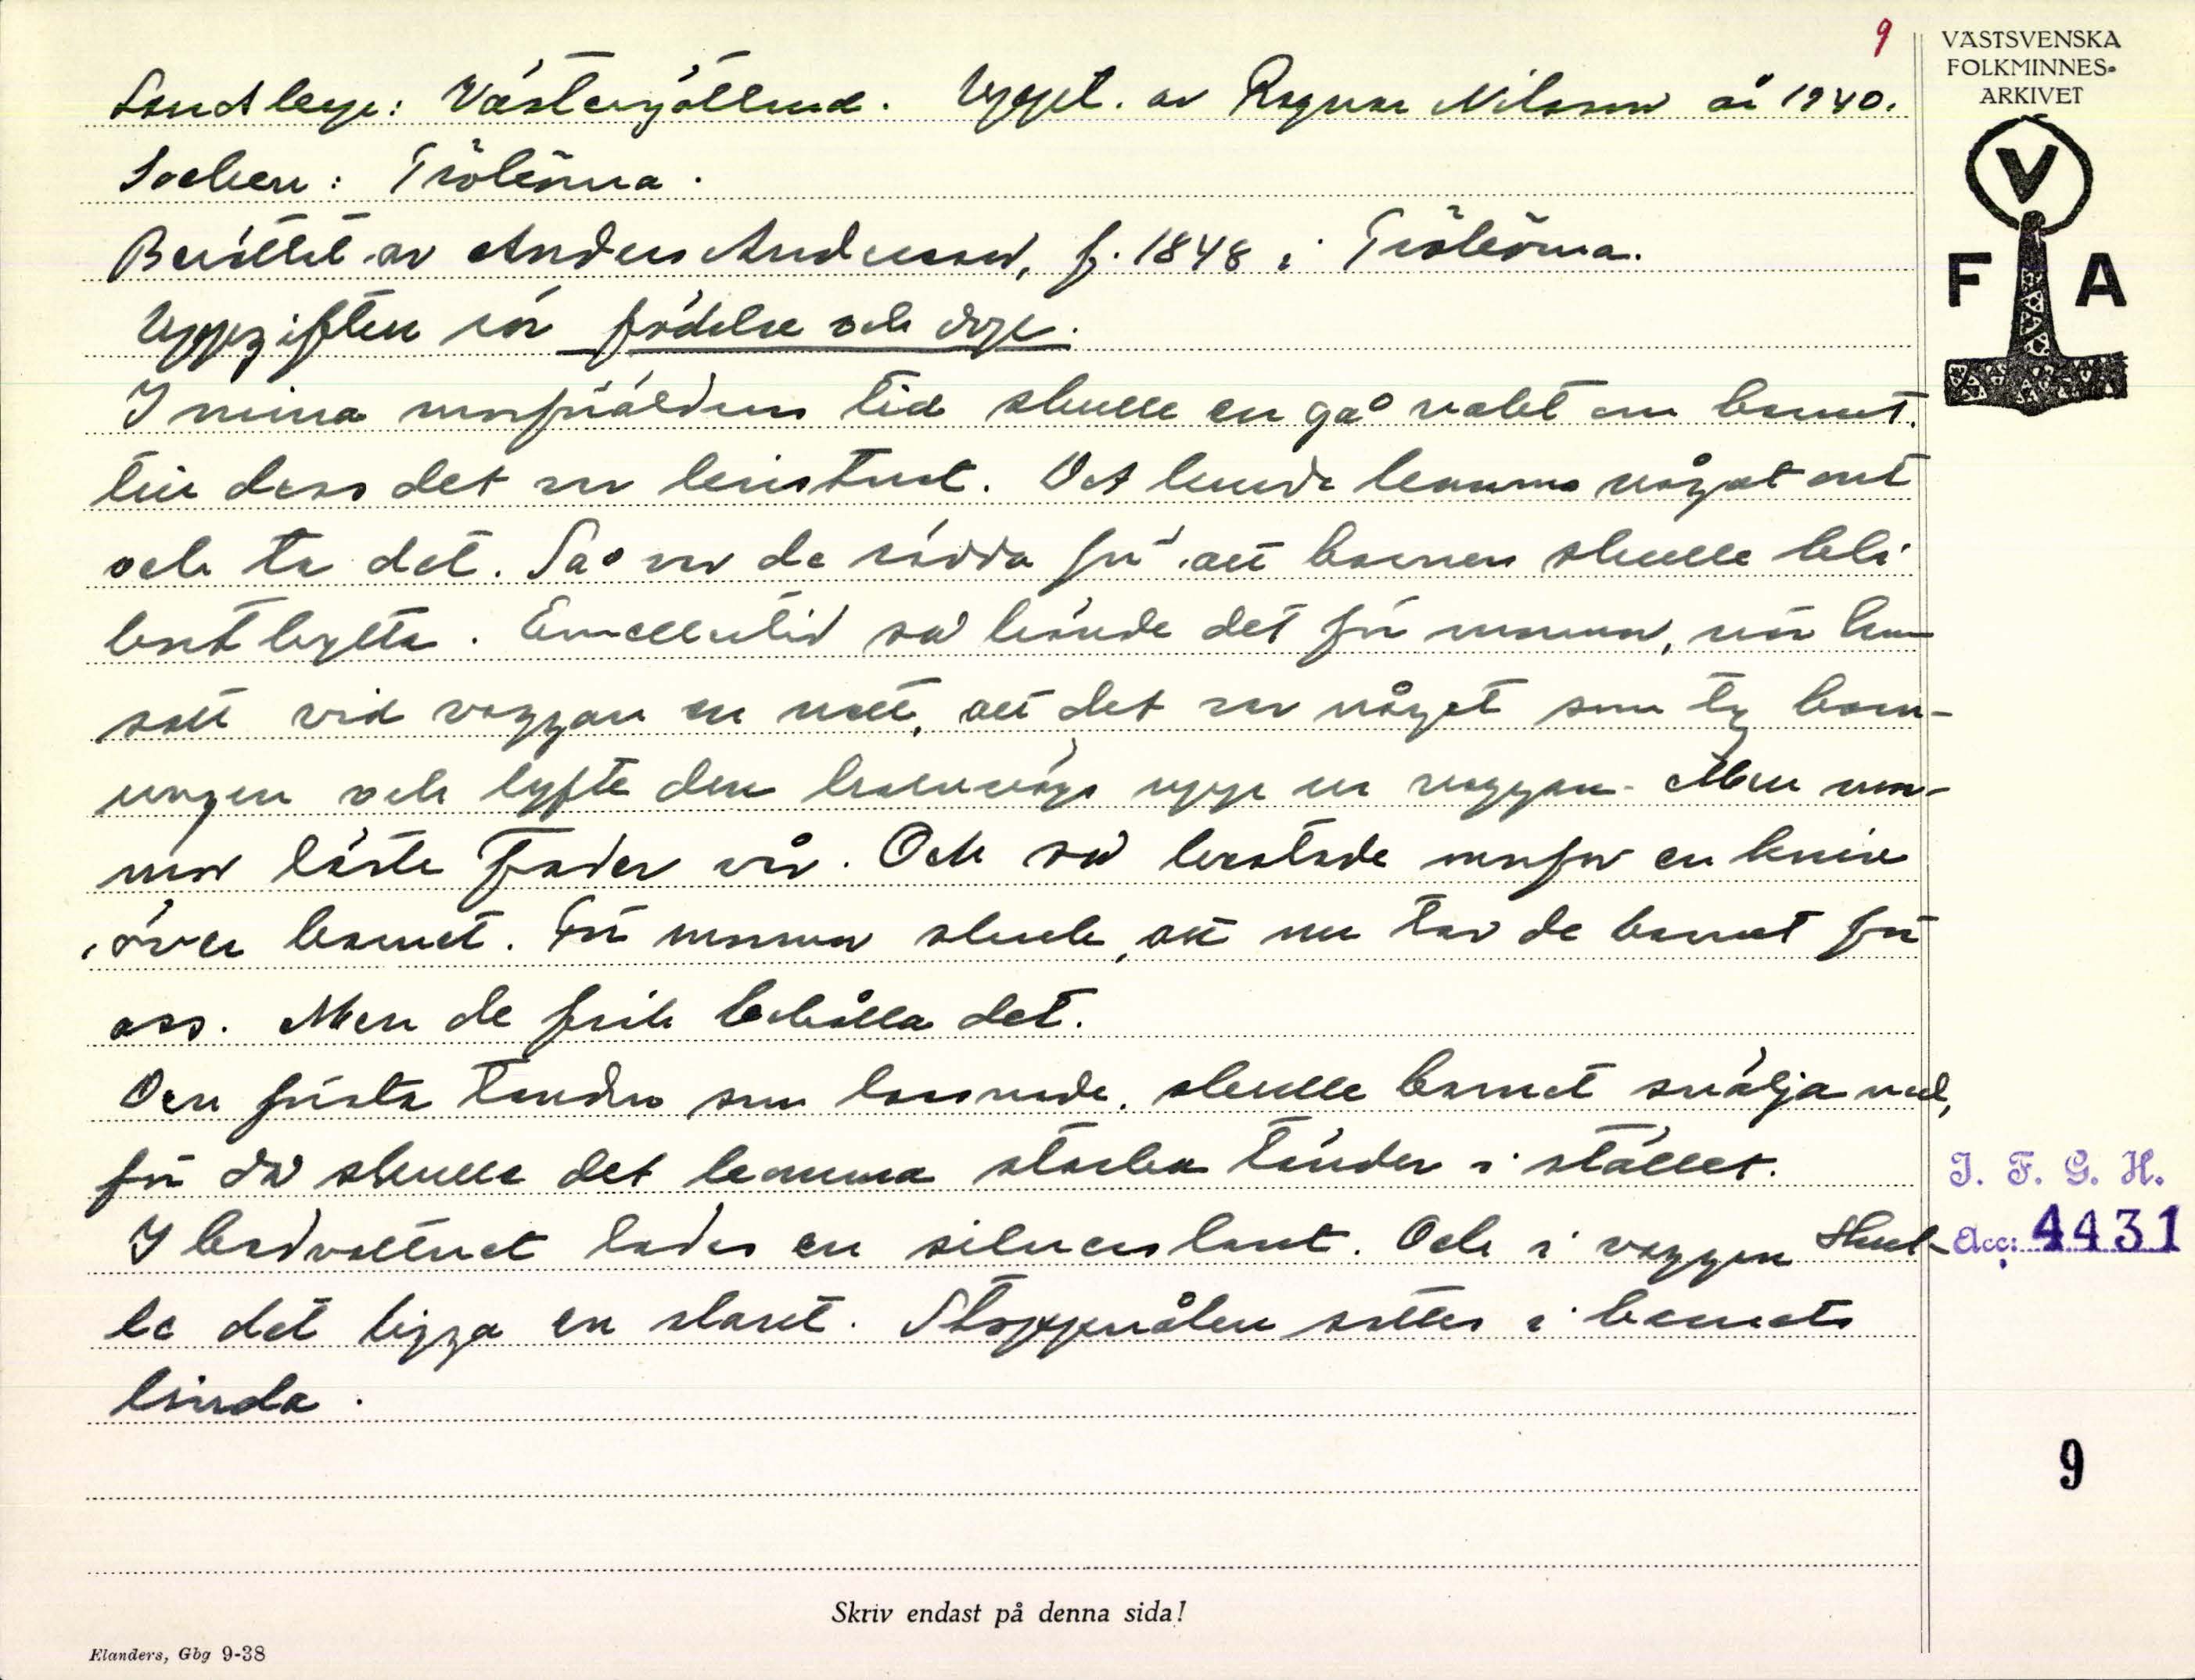 9
VÄSTSVENSKA
FOLKMINNES-
ARKIVET
V
F A
Landskap: Västergötland. Uppt. av Ragnar Nilsson år 1940.
Socken: Trökörna.
Berättat av Anders Andersson, f. 1848 i Trökörna.
Uppgiften rör födelse och dop.
I mina morföräldrars tid skulle en gå vaket om barnet,
till dess det var kristnat. Det kunde komma något ont
och ta det. Så var de rädda för att barnen skulle bli
bortbytta. Emellertid så hände det för mormor, när hon
satt vid vaggan en natt, att det var något som tog barn-
ungen och lyfte den halvvägs upp ur vaggan. Men mor-
mor läste Fader vår. Och så kastade morfar en kniv
över barnet. För mormor skrek, att nu tar de barnet för
oss. Men de fick behålla det.
Den första tanden som lossnade, skulle barnet svälja ned,
för då skulle det komma starka tänder i stället.
I badvattnet lades en silverslant. Och i vaggan skul-
le det ligga en slant. Stoppnålen sattes i barnets
linda.
I. F. G. H.
Acc: 4431
9
Skriv endast på denna sida!
Elanders, Gbg 9-38